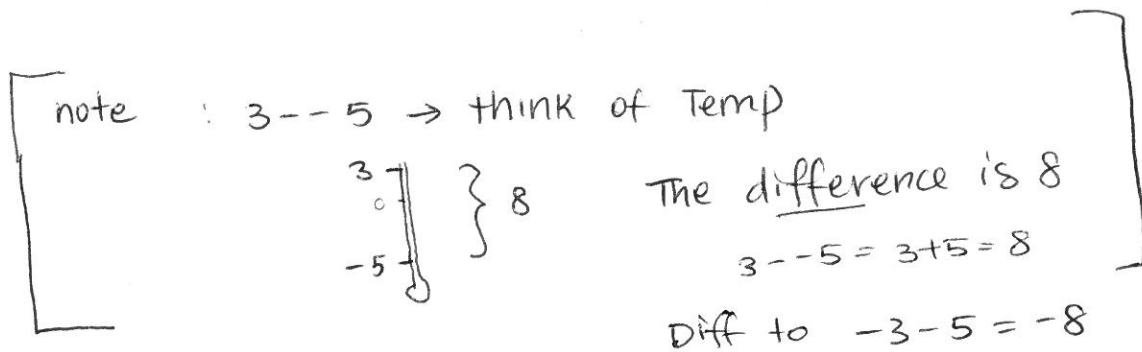 note : 3--5 → think of Temp
3
0
-5
8
The difference is 8
3--5 = 3+5 = 8
Diff to -3-5 = -8